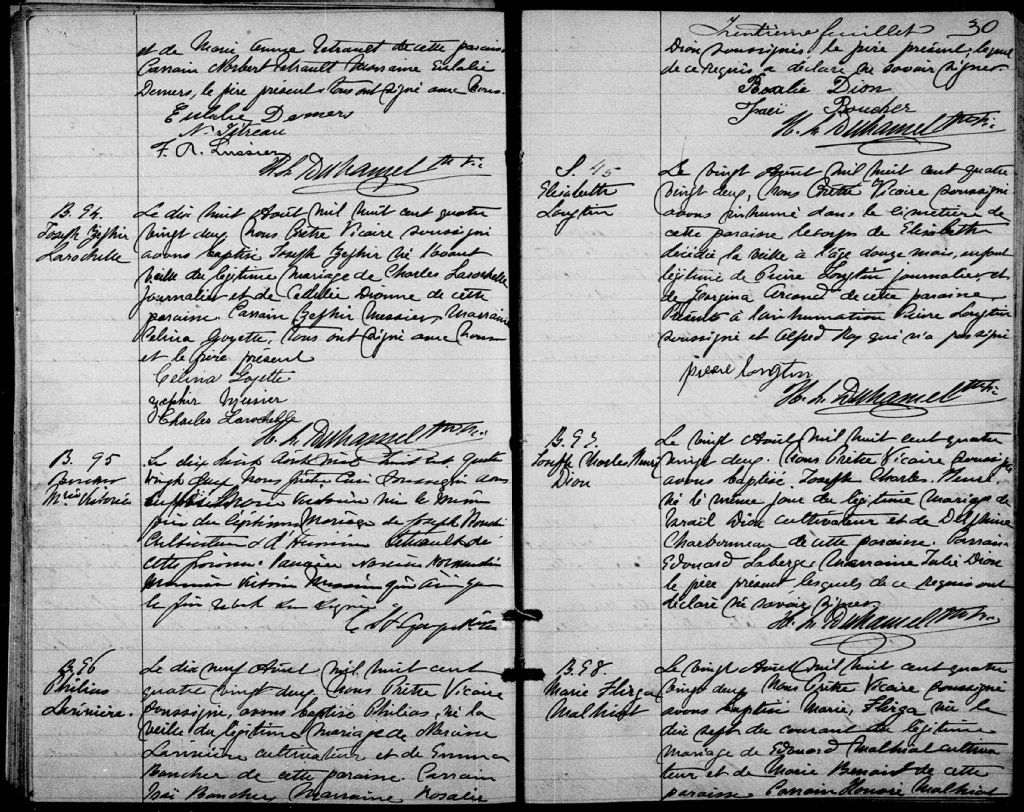 et de Marie Tetrault de cette paroisse
Parrain Norbert Tetrault Marraine Eulalie
Demers, le père present. Tous ont signé avec nous.
Eulalie Demers
N. Tétreau
F. A. Lussier
H. L. Duhamel Ptre Vic.
B. 94.
Joseph Zéphir
Larochelle
Le dix huit Août mil huit cent quatre
vingt deux, Nous Prêtre Vicaire soussigné
avons baptisé Joseph Zéphir né l'avant
veille du légitime mariage de Charles Larochelle
journalier et de Dionne de cette
paroisse. Parrain Zéphir Messier, Marraine
Celina Goyette, Tous ont signé avec nous
et le père present
Celina Goyette
zéphir Messier
Charles Larochelle
H. L. Duhamel Ptre Vic.
B. 95
Mie Victoria
Le dix huit Août mil huit cent quatre
vingt deux nous prêtre Curé soussigné avons
baptisé Victoria née le
jour du légitime Mariage de Joseph
Cultivateur & d' Tétrault de
cette paroisse. Parrain Narcisse
Marraine qui ainsi que
le père n'ont su signer
B. 96
Philias
Larivière.
Le dix neuf Août mil huit cent
quatre vingt deux Nous Prêtre Vicaire
soussigné, avons baptisé Philias, né la
veille du légitime mariage de Narcisse
Larivière cultivateur et de Emma
Boucher de cette paroisse Parrain
Isaï Boucher Marraine Rosalie
Trentième feuillet 30
Dion soussignés le père présent, lequel
de ce requis a déclaré ne savoir signer.
Rosalie Dion
Isaï Boucher
H. L. Duhamel Ptre Vic.
S. 45
Elisabeth
Longtin
Le vingt Août mil huit cent quatre
vingt deux, Nous Prêtre Vicaire soussigné
avons inhumé dans le cimetière de
cette paroisse le corps de Elisabeth
décédée la veille à l'âge douze mois, enfant
légitime de Pierre Longtin journalier et
de Georgina Arcand de cette paroisse.
Présents à l'inhumation Pierre Longtin
soussigné et Alfred Roy qui n'a pas signé
pierre longtin
H. L. Duhamel Ptre Vic.
B. 97.
Joseph Charles Henri
Dion
Le vingt Août mil huit cent quatre
vingt deux. Nous Prêtre Vicaire soussigné
avons baptisé Joseph Charles Henri,
né le même jour du légitime mariage de
Israïl Dion cultivateur et de Delphine
Charbonneau de cette paroisse. Parrain
Edouard Laberge Marraine Julie Dion
le père présent, lesquels de ce requis ont
déclaré ne savoir signer
H. L. Duhamel Ptre Vic.
B. 98.
Marie Flirza
Malhiot
Le vingt Août mil huit cent quatre
vingt deux Nous Prêtre Vicaire soussigné
avons baptisé Marie, Flirza née le
dix sept du courant du légitime
mariage de Edouard Malhiot cultiva
teur et de Marie Benoit de cette
paroisse Parrain Honoré Malhiot